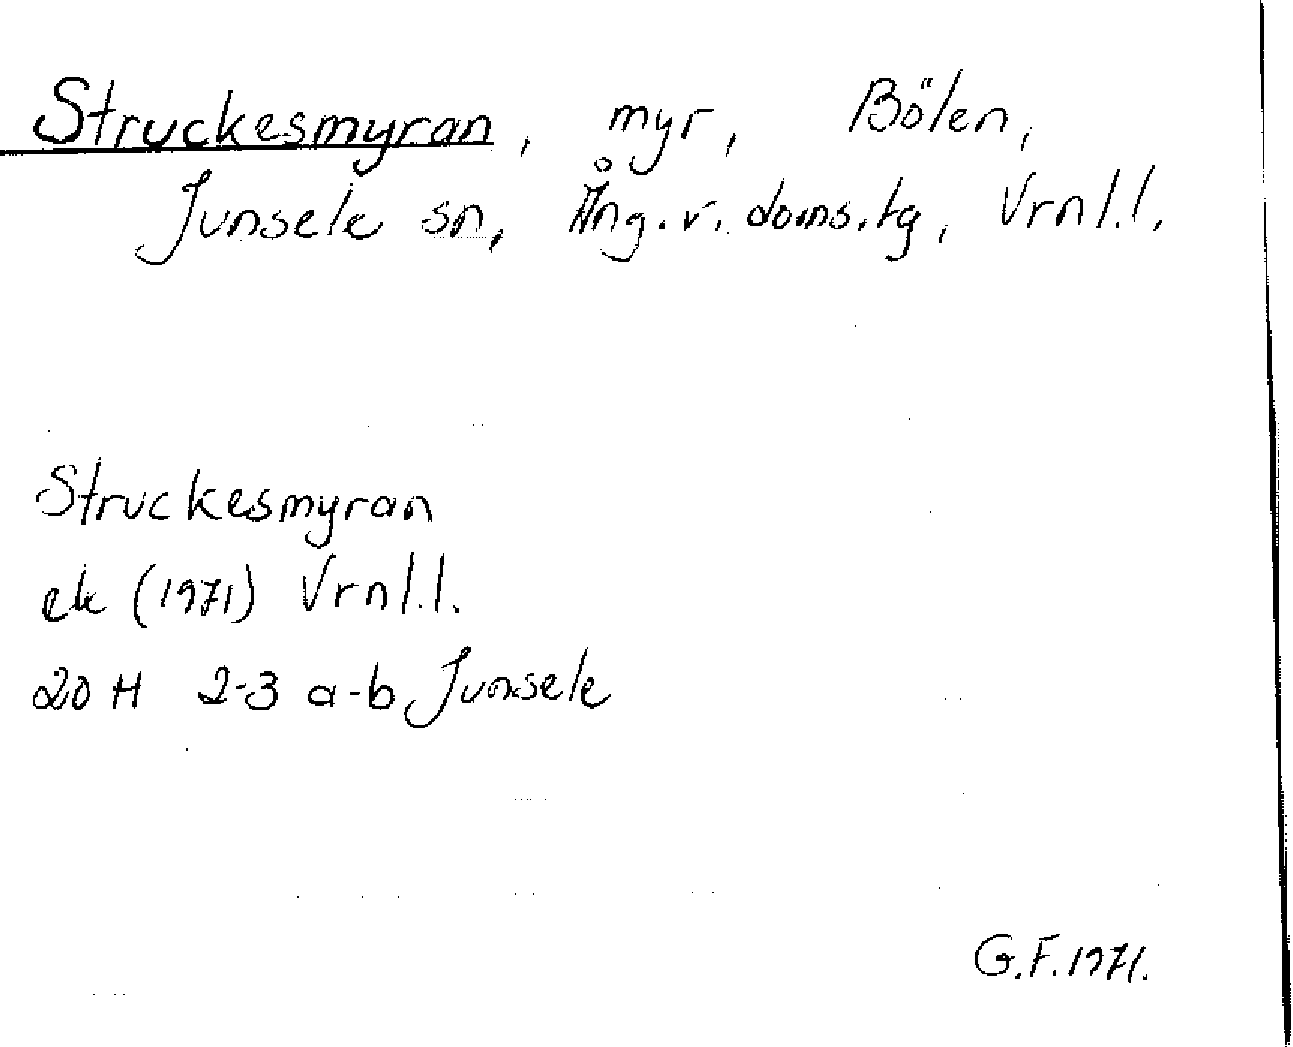 Struckesmyran, myr, Bölen,
Junsele sn, Ång.v. doms.tg, Vrnl.l.
Struckesmyran
ek (1971) Vrnl.l.
20 H 2-3 a-b Junsele
G.F.1971.